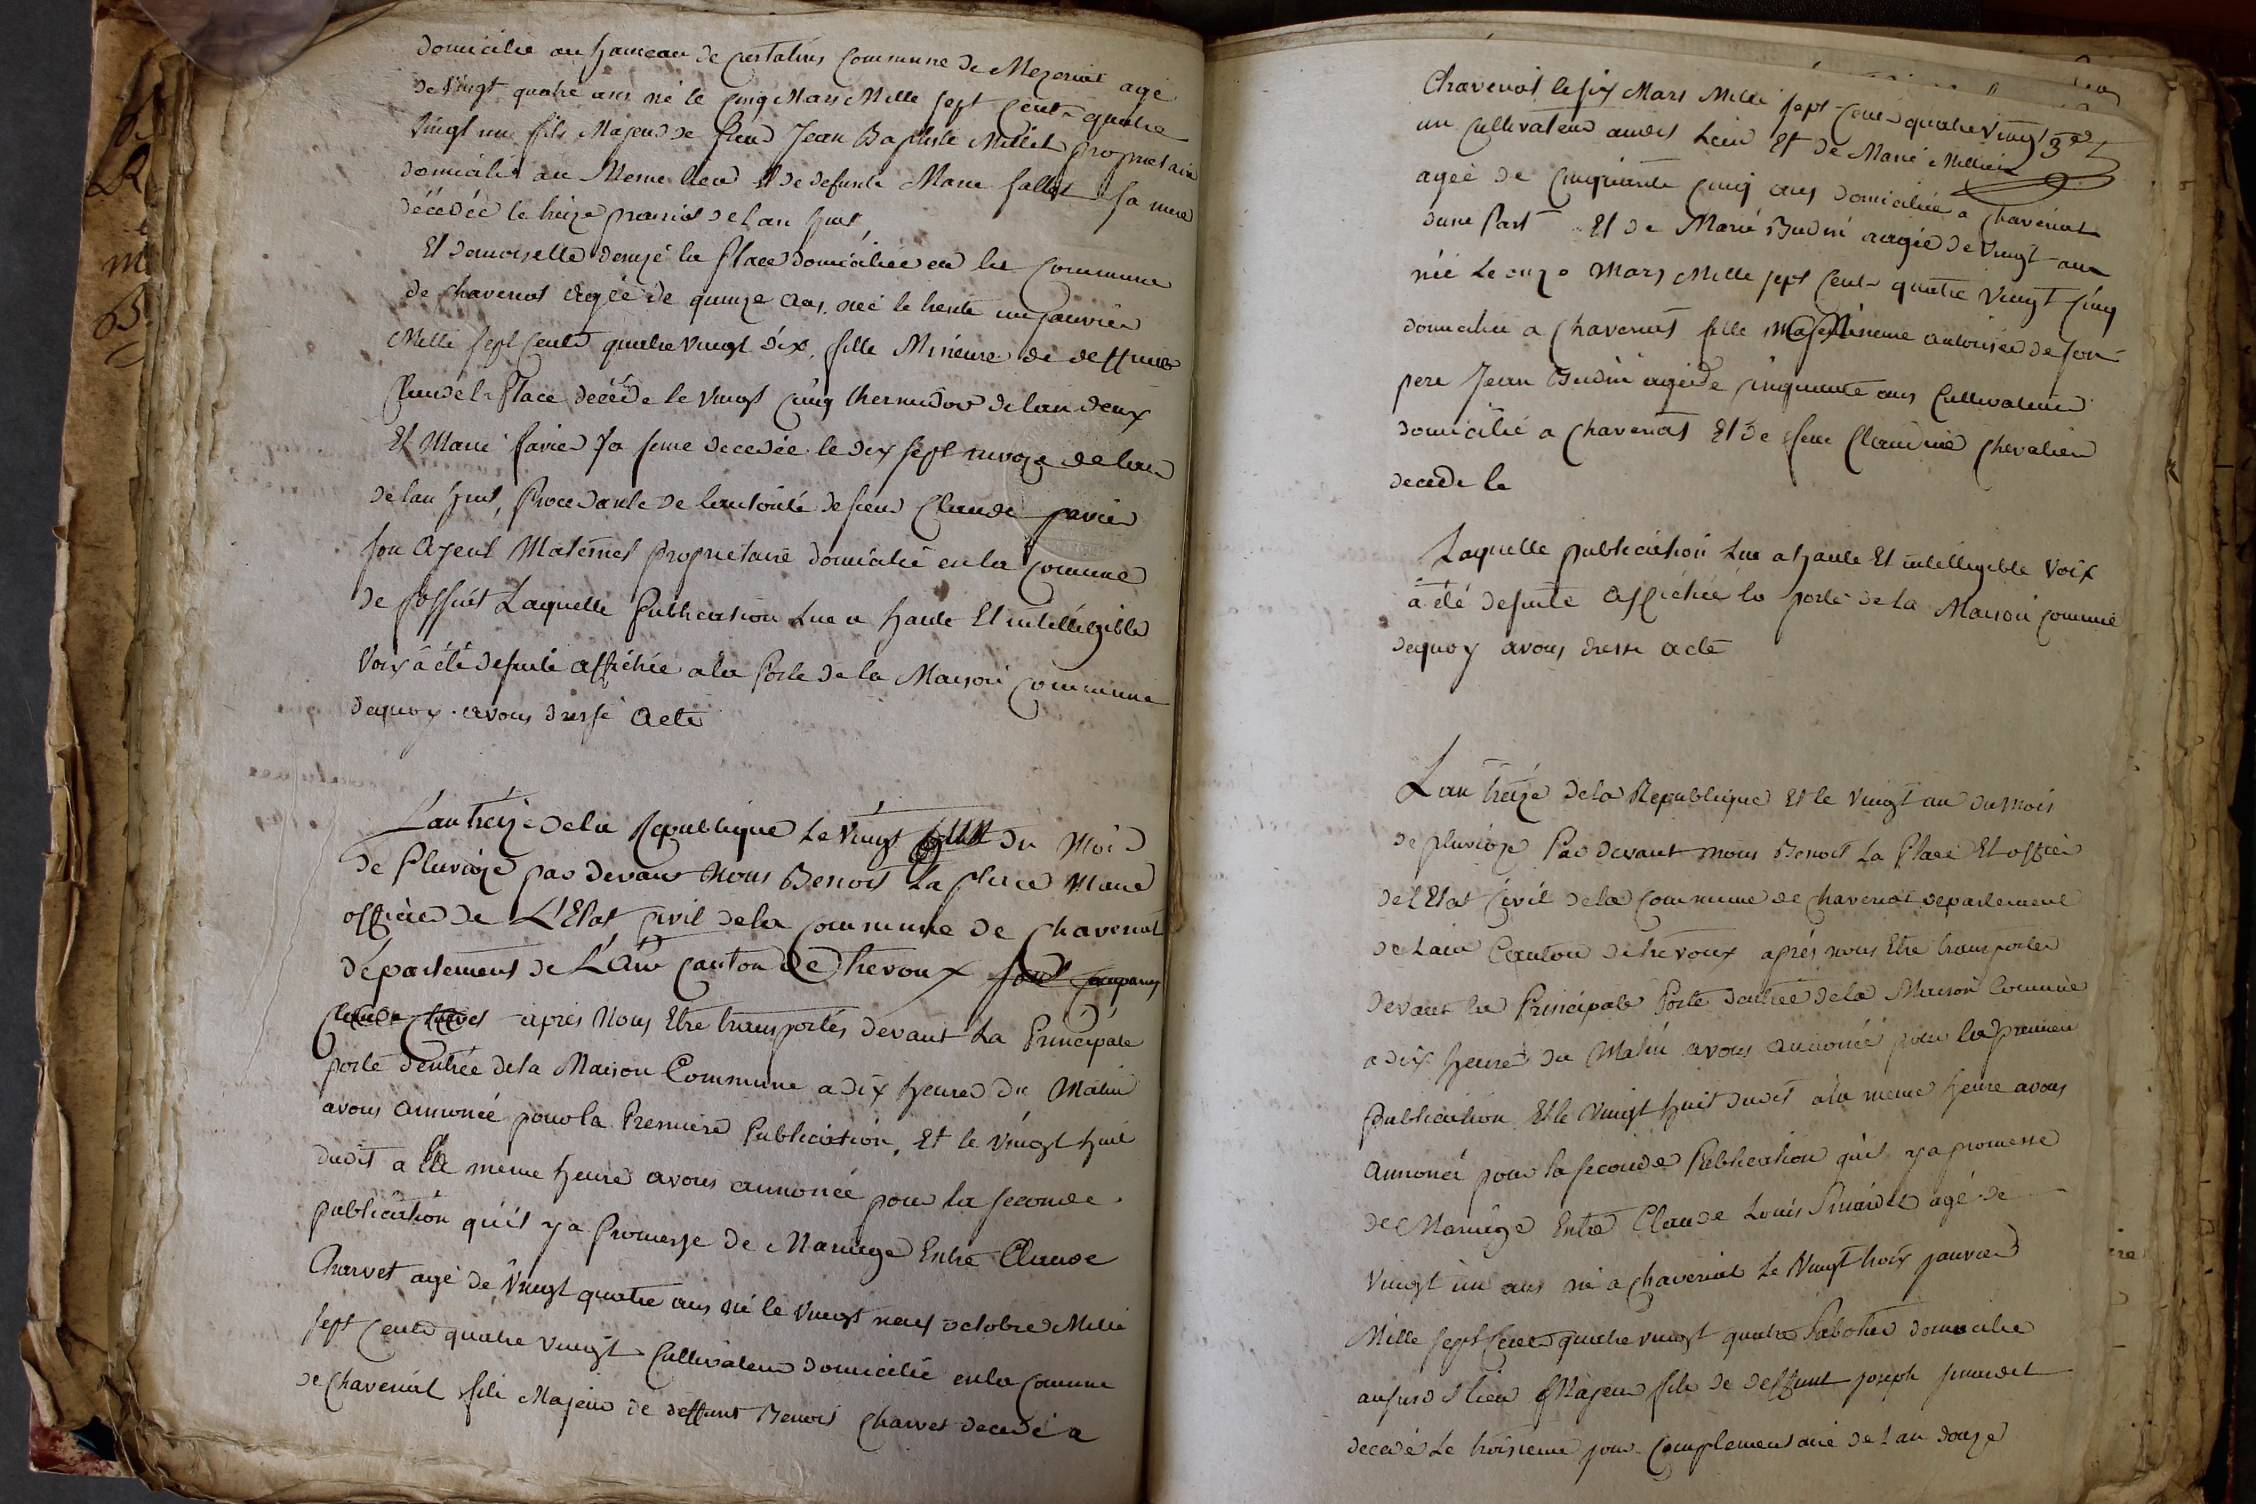 domicilié au hameau de commune de Mezeriat agé
de vingt quatre ans né le cinq Mars Mille sept cent quatre
vingt une fils Majeur de sieur Jean Baptiste Millet proprietaire
domicilié au Meme lieu Et de defunte Marie fallet sa mere
décédée le treize prairial de lan huit
Et demoiselle la place domiciliée en la commune
de chaveriat agée de quinze ans, née le trente un janvier
Mille sept cents quatre vingt dix, fille Mineure de deffunt
Claude la Place decédé le vingt cinq thermidor de lan deux
Et Marie favier sa feme decedée le dix sept nivoze de lan
de lan huit, Procedante de lautorité de sieur Claude favier
son ayeul Maternel proprietaire domicilié en la comune
de Laquelle Publication lue a haute Et intelligible
voix à été desuite affichée a la Porte de la Maison commune
dequoy avons dressé acte
Lan treize de la Republique Le vingt un du Mois
de Pluvioze par devant Nous Benoit La place Maire
officier de L'Etat civil de la commune de chaveriat
département de L'ain canton de Thevoux
après Nous Etre transportés devant La Principale
porte d'entrée de la Maison Commune a dix heures du Matin
avons annoncé pour la Premiere Publication, Et le vingt huit
dudit a la meme heure avons annoncé pour la seconde
publication qu'il y a Promesse de Mariage Entre Claude
Charvet agé de vingt quatre ans né le vingt neuf octobre Mille
sept cents quatre vingt Cultivateur domicilié en la comune
de chaveriat fils Majeur de deffunt Benoit Charvet decedé a
Chaveriat le six Mars Mille sept cent quatre vingt 3e
un Cultivateur audit Lieu Et de Marie
agée de Cinquante cinq ans domiciliée a chaveriat
dune Part Et de Marie Budin aagée de vingt ans
née Le onze Mars Mille sept Cent quatre vingt cinq
domiciliée a chaveriat fille Mineure autorisée de son
pere Jean Budin agé de cinquante ans Cultivateur
domicilié a chaveriat Et de feue Claudine Chevalier
decede le
Laquelle publication Lue a haute Et intelligible voix
à été desuite affichée la porte de la Maison comune
dequoy avons dressé acte
Lan treize de la Republique Et le vingt un du mois
de pluvioze Par devant nous Benoit La Place Et officier
de L'Etat Civil de la commune de chaveriat departement
de Lain Canton de thevoux après nous Etre transportés
devant la Principale Porte d'entrée de la Maison Comune
a dix heures du Matin avons annoncée pour la premiere
Publication Et le vingt huit dudit a la meme heure avons
annoncé pour la seconde Publication qu'il y a promesse
de Mariage Entre Claude Louis agé de
vingt un ans né a chaveriat Le vingt trois janvier
Mille sept Cent quatre vingt quatre Sabotier domicilié
audit lieu Majeur fils de deffunt joseph
decedé Le troisieme jour Complementaire de Lan douze